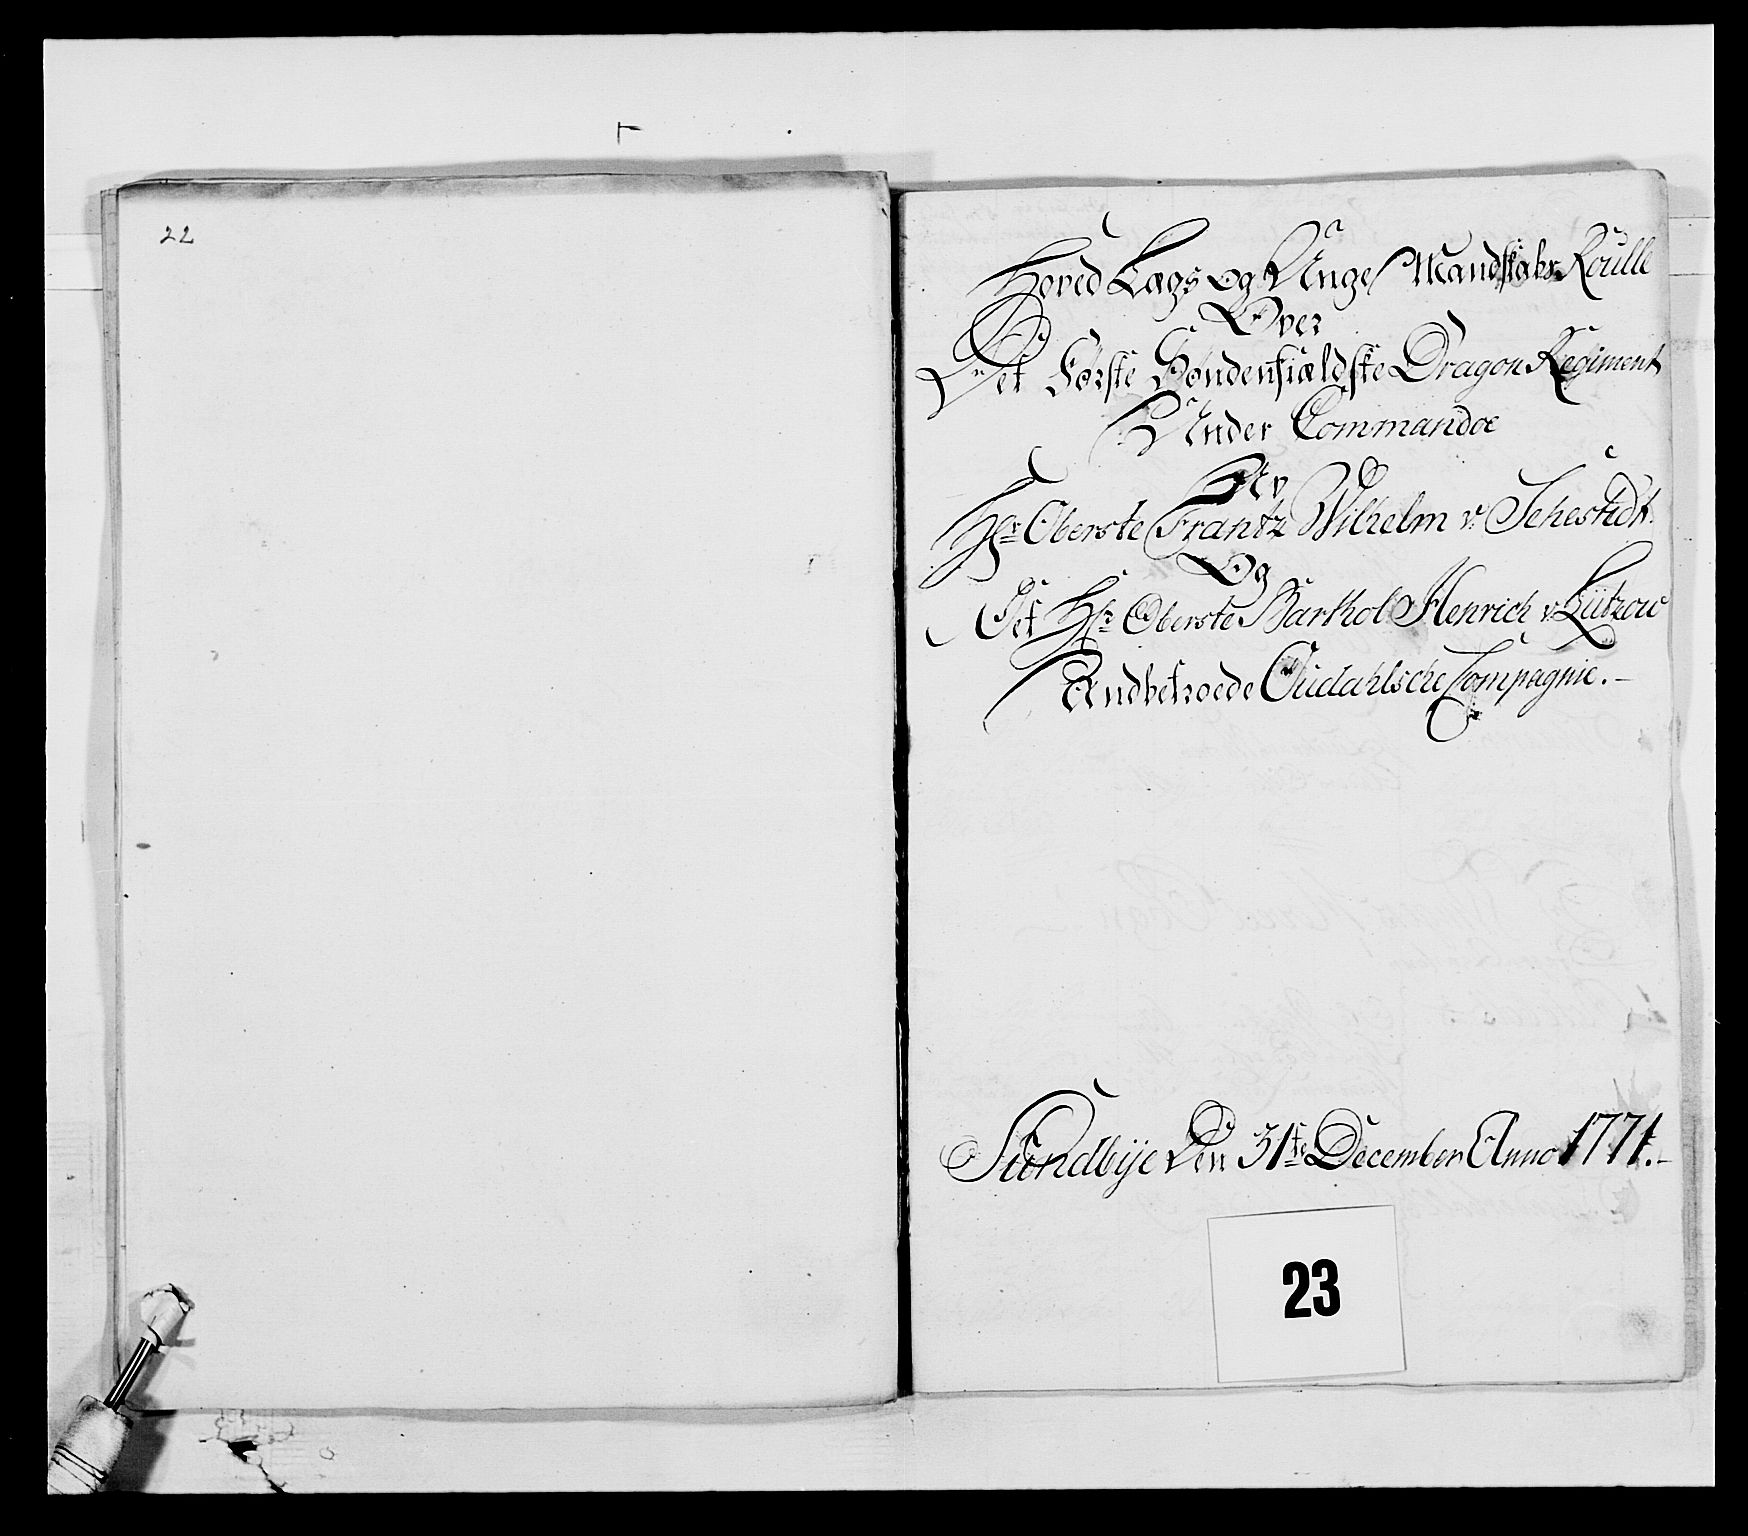 22
Hoved Lægs og Unge Mandskabs Roulle
Over
Det Første Søndenfieldske Dragon Regiment
Under Commandoe
Av
Hr Oberste Frantz Wilhelm v. Sehestedt
Og
Det Hr Oberste Barthol Henrich v. Lützow
Andbetroede Oudahlsche Compagnie.-
Sundbye Den 31te December Anno 1771.-
23